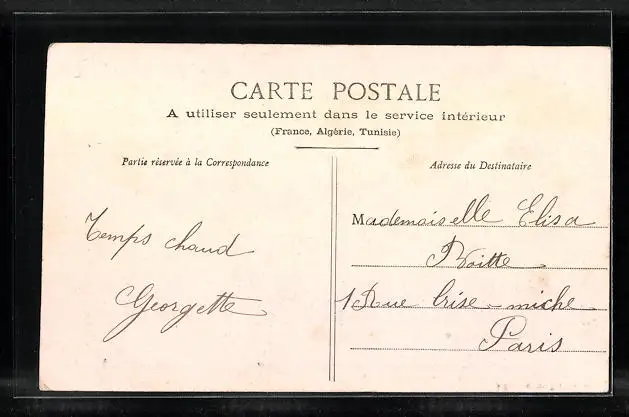 CARTE POSTALE
A utiliser seulement dans le service intérieur
(France, Algérie, Tunisie)
Partie réservée à la Correspondance
Adresse du Destinataire
Temps chaud
Georgette
Mademoiselle Elisa
Boitte
1 Rue Brise-miche
Paris